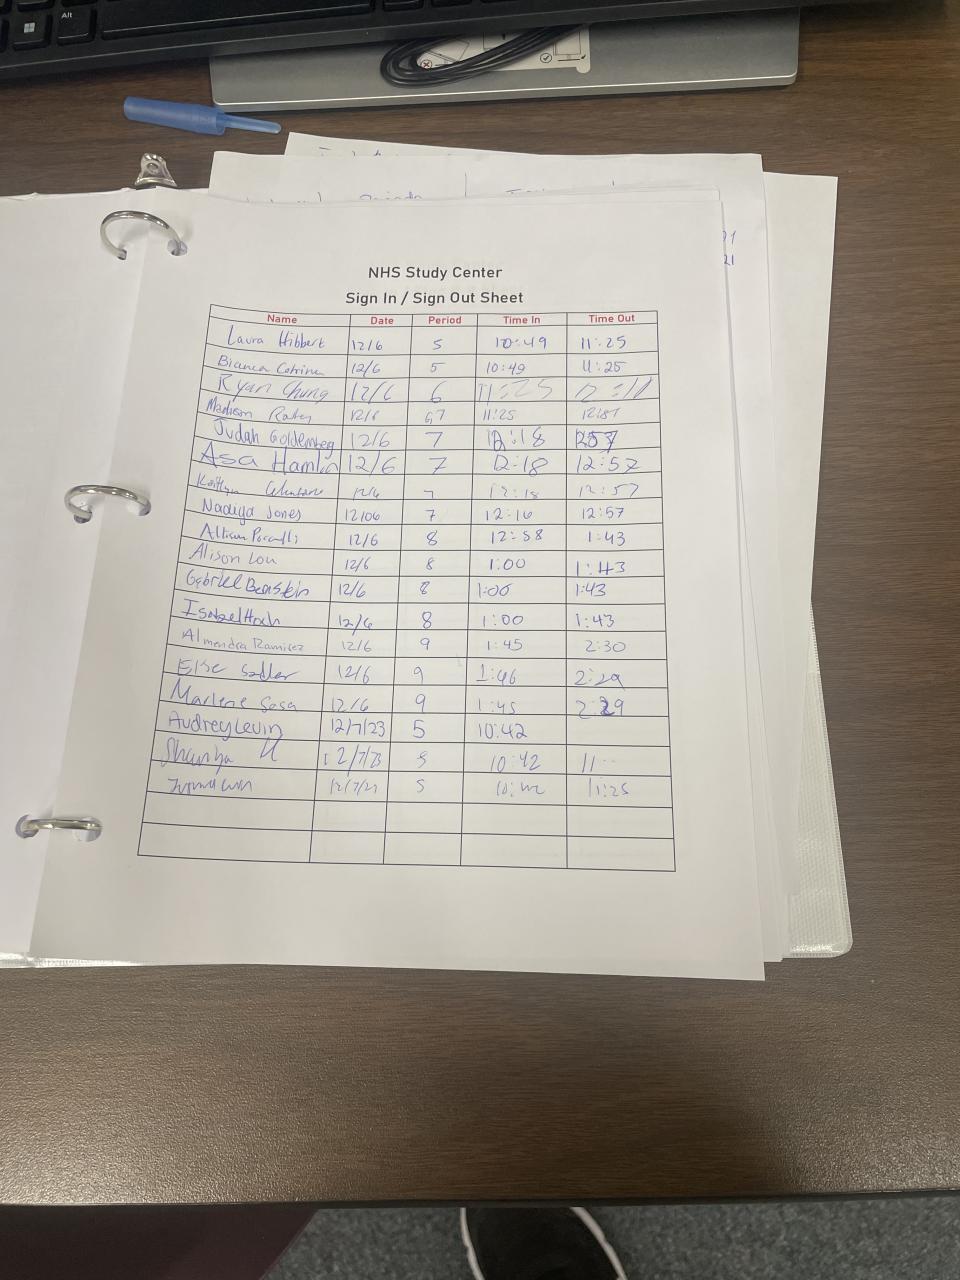 Alt
NHS Study Center
Sign In / Sign Out Sheet
Name Date Period Time In Time Out
Laura Hibbert 12/6 5 10:49 11:25
Bianca 12/6 5 10:49 11:25
Ryan Chung 12/6 6 11:25 12:11
Madison 12/6 6,7 11:25
Judah Goldemberg 12/6 7 12:18
Asa Hamlin 12/6 7 12:18 12:57
Kaitlyn 12/6 7 12:18 12:57
Nadiya Jones 12/06 7 12:16 12:57
Allison 12/6 8 12:58 1:43
Alison Lou 12/6 8 1:00 1:43
Gabriel 12/6 8 1:00 1:43
Isabel 12/6 8 1:00 1:43
Almendra Ramirez 12/6 9 1:45 2:30
Sadler 12/6 9 1:46 2:29
Marlene Sosa 12/6 9 1:45 2:29
Audrey Levin 12/7/23 5 10:42
12/7/23 5 10:42 11
12/7/23 5 11:25